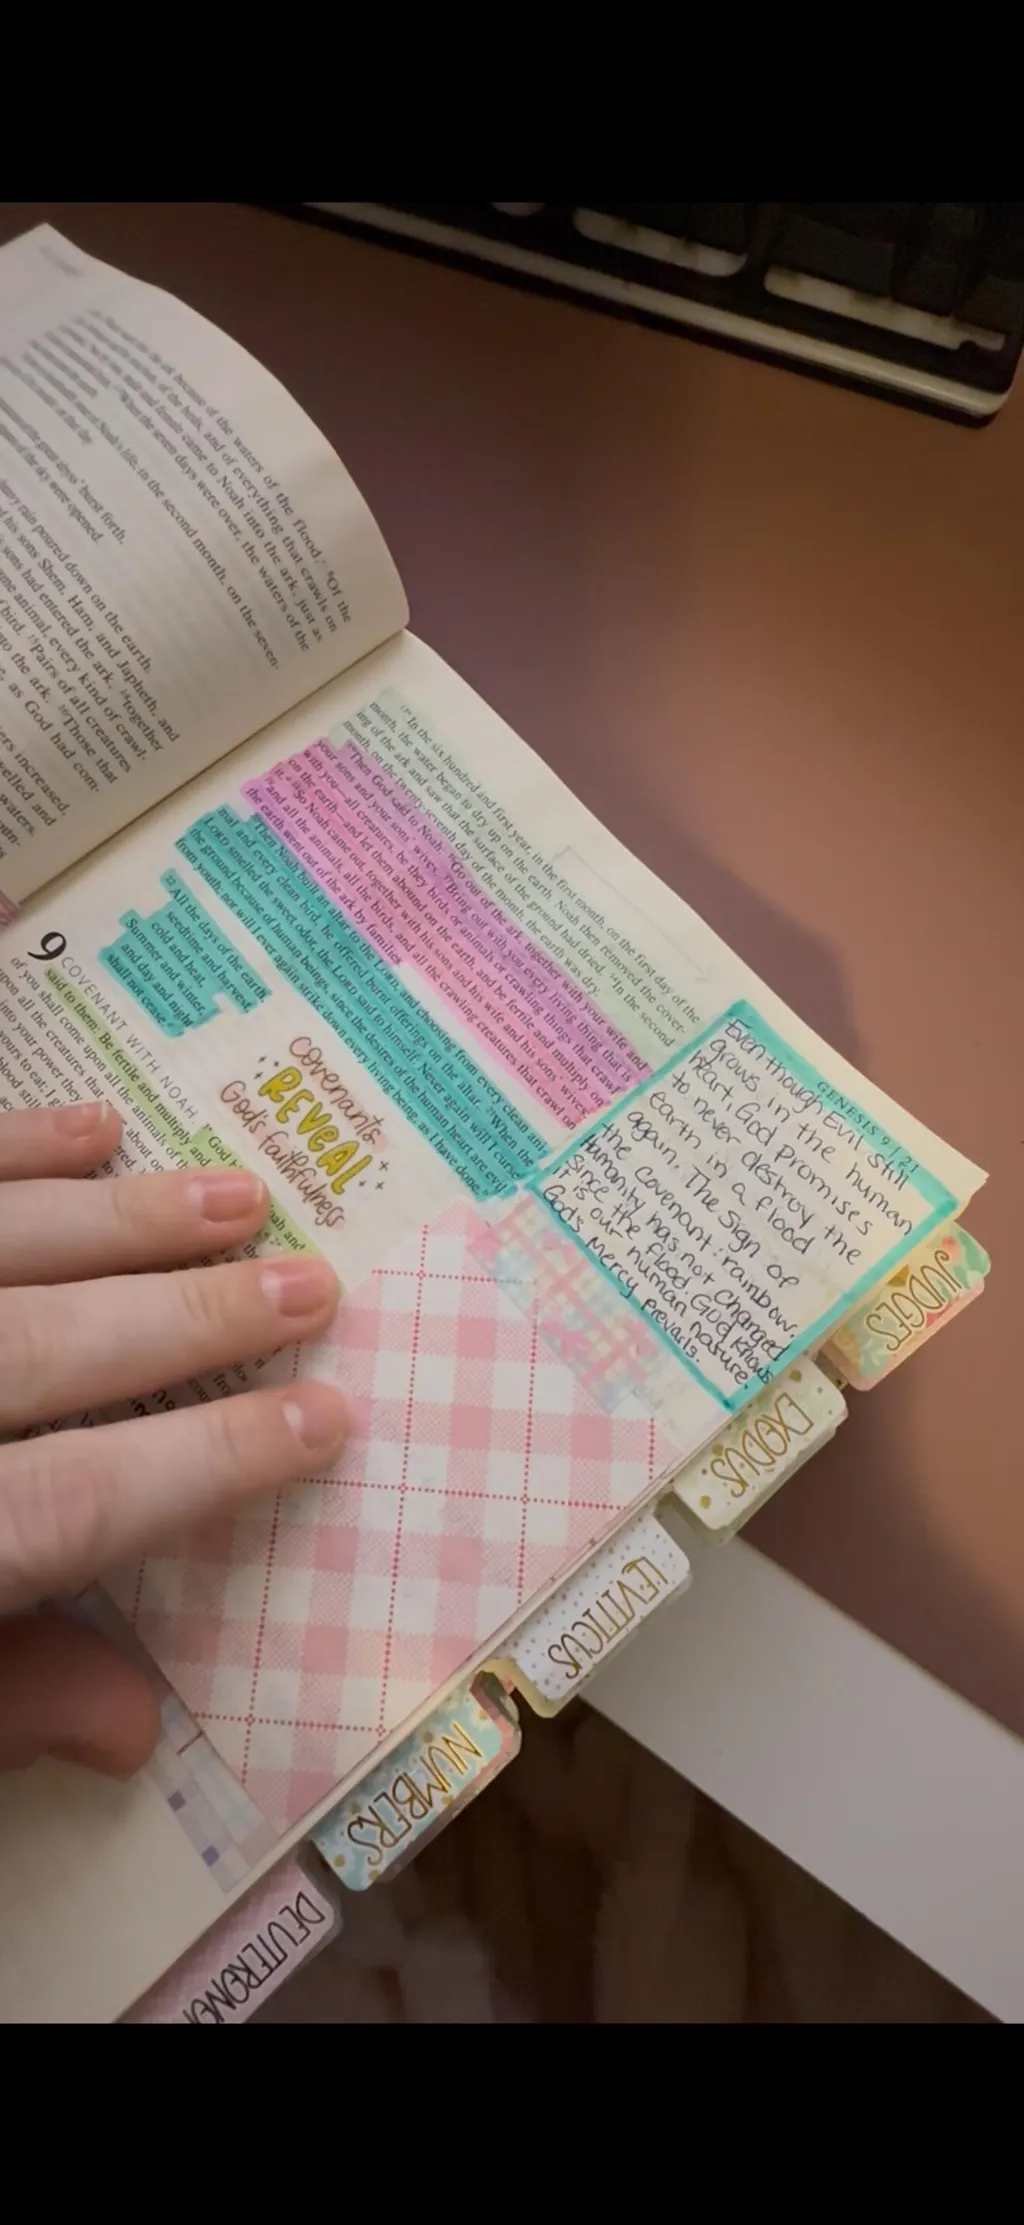 because of the waters of the flood. ⁸Of the
of the birds, and of everything that crawls on
male and female came to Noah into the ark, just as
When the seven days were over, the waters of the
of Noah's life, in the second month, on the seven-
the great abyss burst forth,
of the sky were opened.
rain poured down on the earth.
his sons Shem, Ham, and Japheth, and
sons had entered the ark, ¹⁴together
animal, every kind of crawl-
bird. ¹⁵Pairs of all creatures
to the ark. ¹⁶Those that
as God had com-
increased,
swelled and
waters.
¹³In the six hundred and first year, in the first month, on the first day of the
month, the water began to dry up on the earth. Noah then removed the cover-
ing of the ark and saw that the surface of the ground had dried. ¹⁴In the second
month, on the twenty-seventh day of the month, the earth was dry.
¹⁵Then God said to Noah: ¹⁶Go out of the ark, together with your wife and
your sons and your sons' wives. ¹⁷Bring out with you every living thing that is
with you—all creatures, be they birds or animals or crawling things that crawl
on the earth—and let them abound on the earth, and be fertile and multiply on
it. ¹⁸So Noah came out, together with his sons and his wife and his sons' wives;
¹⁹and all the animals, all the birds, and all the crawling creatures that crawl on
the earth went out of the ark by families.
²⁰Then Noah built an altar to the LORD, and choosing from every clean ani-
mal and every clean bird, he offered burnt offerings on the altar. ²¹When the
LORD smelled the sweet odor, the LORD said to himself: Never again will I curse
the ground because of human beings, since the desires of the human heart are evil
from youth; nor will I ever again strike down every living being, as I have done.
²²All the days of the earth,
seedtime and harvest,
cold and heat,
Summer and winter,
and day and night
shall not cease.
covenants
REVEAL
God's faithfulness
9 COVENANT WITH NOAH ¹God
Noah and
said to them: Be fertile and multiply and
of you shall come upon all the animals of the
upon all the creatures that
into your power they
yours to eat; I
blood still
GENESIS 9 | 21
Even though Evil still
grows in the human
heart, God promises
to never destroy the
earth in a flood
again. The sign of
the Covenant: rainbow.
Humanity has not changed
since the flood. God knows
is our human nature.
God's Mercy prevails.
JUDGES
EXODUS
LEVITICUS
NUMBERS
DEUTERONO